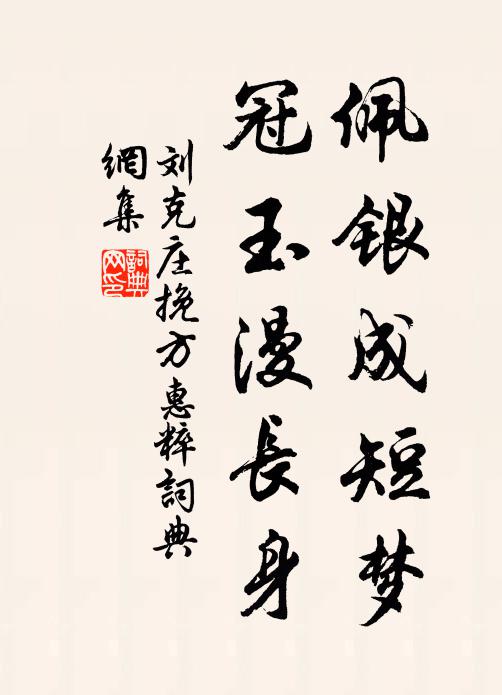 佩银成短梦
冠玉漫長身
刘克庄挽方惠粹詞典
網集
詞典
网印